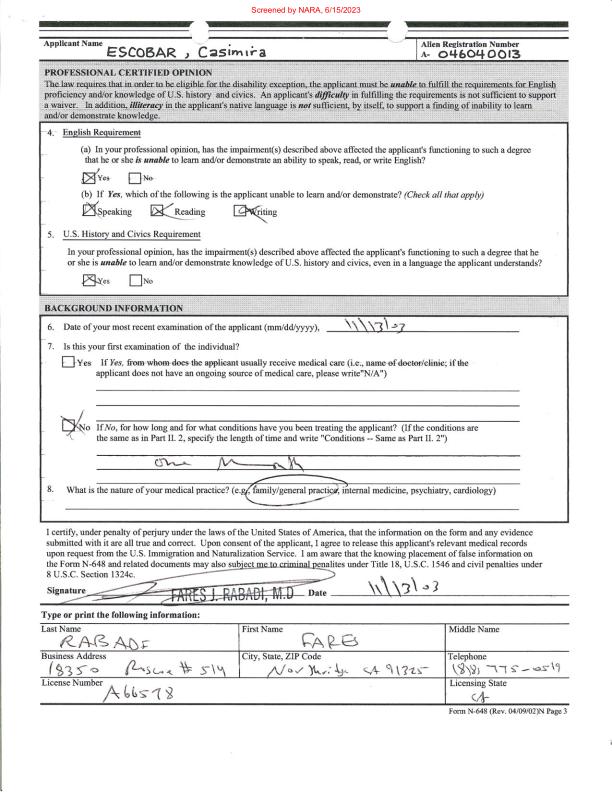 Screened by NARA, 6/15/2023
Applicant Name ESCOBAR, Casimira
Alien Registration Number
A- 046040013
PROFESSIONAL CERTIFIED OPINION
The law requires that in order to be eligible for the disability exception, the applicant must be unable to fulfill the requirements for English
proficiency and/or knowledge of U.S. history and civics. An applicant's difficulty in fulfilling the requirements is not sufficient to support
a waiver. In addition, illiteracy in the applicant's native language is not sufficient, by itself, to support a finding of inability to learn
and/or demonstrate knowledge.
4. English Requirement
(a) In your professional opinion, has the impairment(s) described above affected the applicant's functioning to such a degree
that he or she is unable to learn and/or demonstrate an ability to speak, read, or write English?
Yes No
(b) If Yes, which of the following is the applicant unable to learn and/or demonstrate? (Check all that apply)
Speaking Reading Writing
5. U.S. History and Civics Requirement
In your professional opinion, has the impairment(s) described above affected the applicant's functioning to such a degree that he
or she is unable to learn and/or demonstrate knowledge of U.S. history and civics, even in a language the applicant understands?
Yes No
BACKGROUND INFORMATION
6. Date of your most recent examination of the applicant (mm/dd/yyyy), 11/13/03
7. Is this your first examination of the individual?
Yes If Yes, from whom does the applicant usually receive medical care (i.e., name of doctor/clinic; if the
applicant does not have an ongoing source of medical care, please write"N/A")
No If No, for how long and for what conditions have you been treating the applicant? (If the conditions are
the same as in Part II. 2, specify the length of time and write "Conditions -- Same as Part II. 2")
one Month
8. What is the nature of your medical practice? (e.g., family/general practice, internal medicine, psychiatry, cardiology)
I certify, under penalty of perjury under the laws of the United States of America, that the information on the form and any evidence
submitted with it are all true and correct. Upon consent of the applicant, I agree to release this applicant's relevant medical records
upon request from the U.S. Immigration and Naturalization Service. I am aware that the knowing placement of false information on
the Form N-648 and related documents may also subject me to criminal penalites under Title 18, U.S.C. 1546 and civil penalties under
8 U.S.C. Section 1324c.
Signature FARES J. RABADI, M.D Date 11/13/03
Type or print the following information:
Last Name First Name Middle Name
RABADI FARES
Business Address City, State, ZIP Code Telephone
18350 Roscoe # 514 Northridge CA 91325 (818) 775-0519
License Number Licensing State
A66578 CA
Form N-648 (Rev. 04/09/02)N Page 3